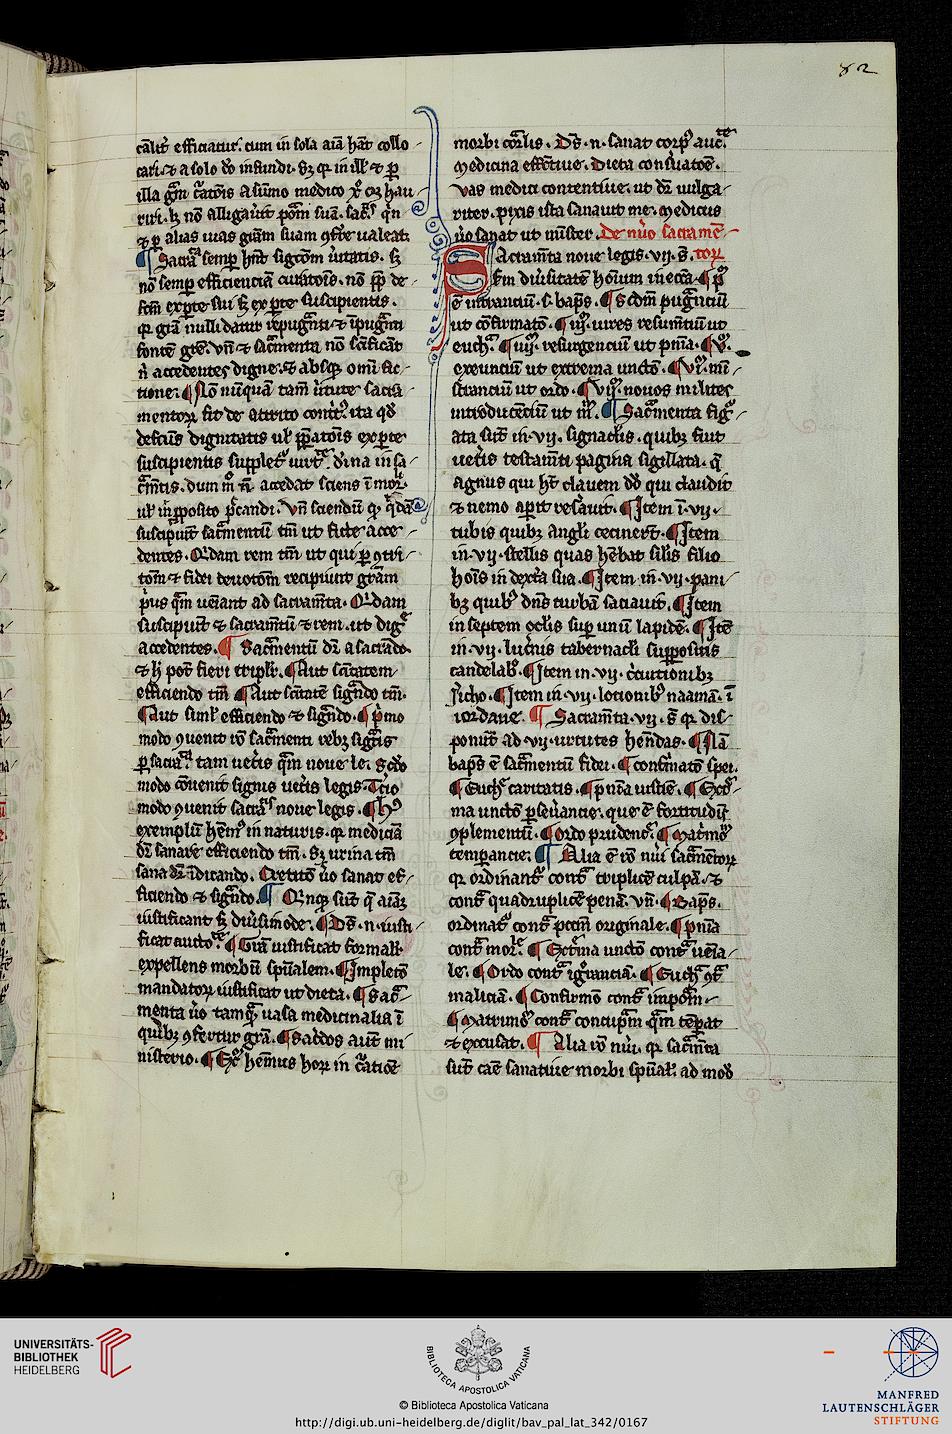 82
calit' efficiatur. cum in sola aīa hāt collo
cari. ⁊ a solo deo infundi. Sꝫ qꝛ in ill' ⁊ ꝑ
illa grām curatōis a sūmo medico xo oꝫ hau
riri. ꝫ nō alligauit potēciam suā. sacris qn̄
⁊ ꝑ alias uias grām suam ꝯferre ualeat.
¶ Sacramenta semꝑ hn̄t signatōm ueritatis. sꝫ
nō semꝑ efficienciā curatōis. nō ꝓpter de
fectum ex parte sui sꝫ ex parte suscipientis.
qꝛ grā nulli datur repugnāti ⁊ īpugnāti
fontē gr̄e. Vn̄ ⁊ sacramenta nō sanctificāt
nisi accedentes digne. ⁊ absqꝫ omī fic
tione. ¶ Nō nūquā tam̄ uirtute sacra
mentoꝝ fit de attrito contritus. ita qd
defectus dignitatis uel preparatōis ex parte
suscipientis suppletur uirtute diuina in sa
cramentis. dum modo nō accedat sciens ī mortali
uel in proposito peccandi. Vn̄ sciendū qꝛ quidam
suscipiūt sacramentū tm̄ ut ficte acce
dentes. Quidam rem tm̄ ut qui ꝑ ꝯtri
tōm ⁊ fidei deuotōm recipiunt grām
prius qm̄ ueniant ad sacramenta. Quidam
suscipiūt ⁊ sacramentū ⁊ rem. ut digne
accedentes. ¶ Sacramentū dr̄ a sacrādo
⁊ h' pot' fieri triplr. ¶ Aut sanctitatem
efficiendo tm̄ ¶ Aut sanctitatē signādo tm̄.
¶ Aut simul efficiendo ⁊ signādo. ¶ primo
modo ꝯuenit uero sacramenti rebꝫ signatis
ꝑ sacramenta tam ueteris qm̄ noue legis. Secundo
modo ꝯuenit signis ueteris legis. Tercio
modo ꝯuenit sacramentis noue legis. ¶ Huius
exemplū habemus in naturis. qꝛ medicina
dr̄ sanare efficiendo tm̄. Sꝫ urina tm̄
sana dr̄ īdicando. Cretico uero sanat ef
ficiendo ⁊ signādo. ¶ Quinqꝫ sūt que aīaꝫ
iustificant sꝫ diuersimode. ¶ Ds̄. n. iusti
ficat auctoritate. ¶ Grā iustificat formalit'
expellens morbū spūalem. ¶ Impletio
mandatoꝝ iustificat ut dieta. ¶ Sacra
menta uero tamquam uasa medicinalia ī
quibꝫ ꝯfertur grā. ¶ Sacerdos aut mi
nisterio. ¶ Exemplum hēmus hoꝝ in curatione
morbi corporalis. Ds̄. n. sanat corpus auctoritate
Medicina effectiue. Dieta conseruatōe.
Vas medici contentiue. ut dr̄ uulga
riter. pixis ista sanauit me. Medicus
uero sanat ut minister. De numero sacramen
Sacramenta noue legis. vii. s. torum
Sm̄ diuersitatē hoīum in ecclesia. ¶ primus
ē intranciū. s. baps. ¶ scdm pugnanciū
ut confirmatō. ¶ iii. uires resumentiū ut
euchā. ¶ iiii. resurgenciū ut pnīa. ¶ v.
exeunciū ut extrema unctō. ¶ vi. mini
stranciū ut ordo. ¶ vii. nouos milites
introducēciū ut m. ¶ Sacramenta figur
ata sūt in. vii. signaclis. quibꝫ fuit
ueteris testamēti pagina sigillata. que
agnus qui ht' clauem dauid qui claudit
⁊ nemo aperit reserauit. ¶ Item ī. vii.
tubis quibꝫ angli cecinert. ¶ Item
in. vii. stellis quas hēbat silis filio
hoīs in dextera sua. ¶ Item in. vii. pani
bꝫ quibꝫ dn̄s turbā saciauit. ¶ Item
in septem oclis super unū lapidē. ¶ Itē
in. vii. lucernis tabernacli superpositis
candelabro. ¶ Item in. vii. circuitionibꝫ
iericho. ¶ Item in. vii. lotionibꝫ naamā. ī
iordane. ¶ Sacramenta. vii. s. qꝛ dis
ponunt ad. vii. uirtutes habendas. ¶ Nam
baps ē sacramentū fidei. ¶ confirmatō spei.
¶ Euchā caritatis. ¶ pnīa iusticie. ¶ Extre
ma unctō perseuerancie. que ē fortitudinis
ꝯplementū. ¶ Ordo prudencie. ¶ Matrimonium
temperancie. ¶ Alia ē ratio numeri sacramentoꝝ
qꝛ ordinantur contra triplicē culpā. ⁊
contra quadruplicē penā. Vn̄. ¶ Baps.
ordinatur contra peccatum originale. ¶ pnīa
contra mortale. ¶ Extrema unctō contra uenia
le. ¶ Ordo contra ignoranciā. ¶ Euchā contra
maliciā. ¶ Confirmatio contra impotenciam.
¶ Matrimonium contra concupiscenciam quam temperat
⁊ excusat. ¶ Alia ratio numeri. qꝛ sacramenta
sūt cause sanatiue morbi spūal'. ad modum
UNIVERSITÄTS-
BIBLIOTHEK
HEIDELBERG
BIBLIOTECA APOSTOLICA VATICANA
© Biblioteca Apostolica Vaticana
http://digi.ub.uni-heidelberg.de/diglit/bav_pal_lat_342/0167
MANFRED
LAUTENSCHLÄGER
STIFTUNG